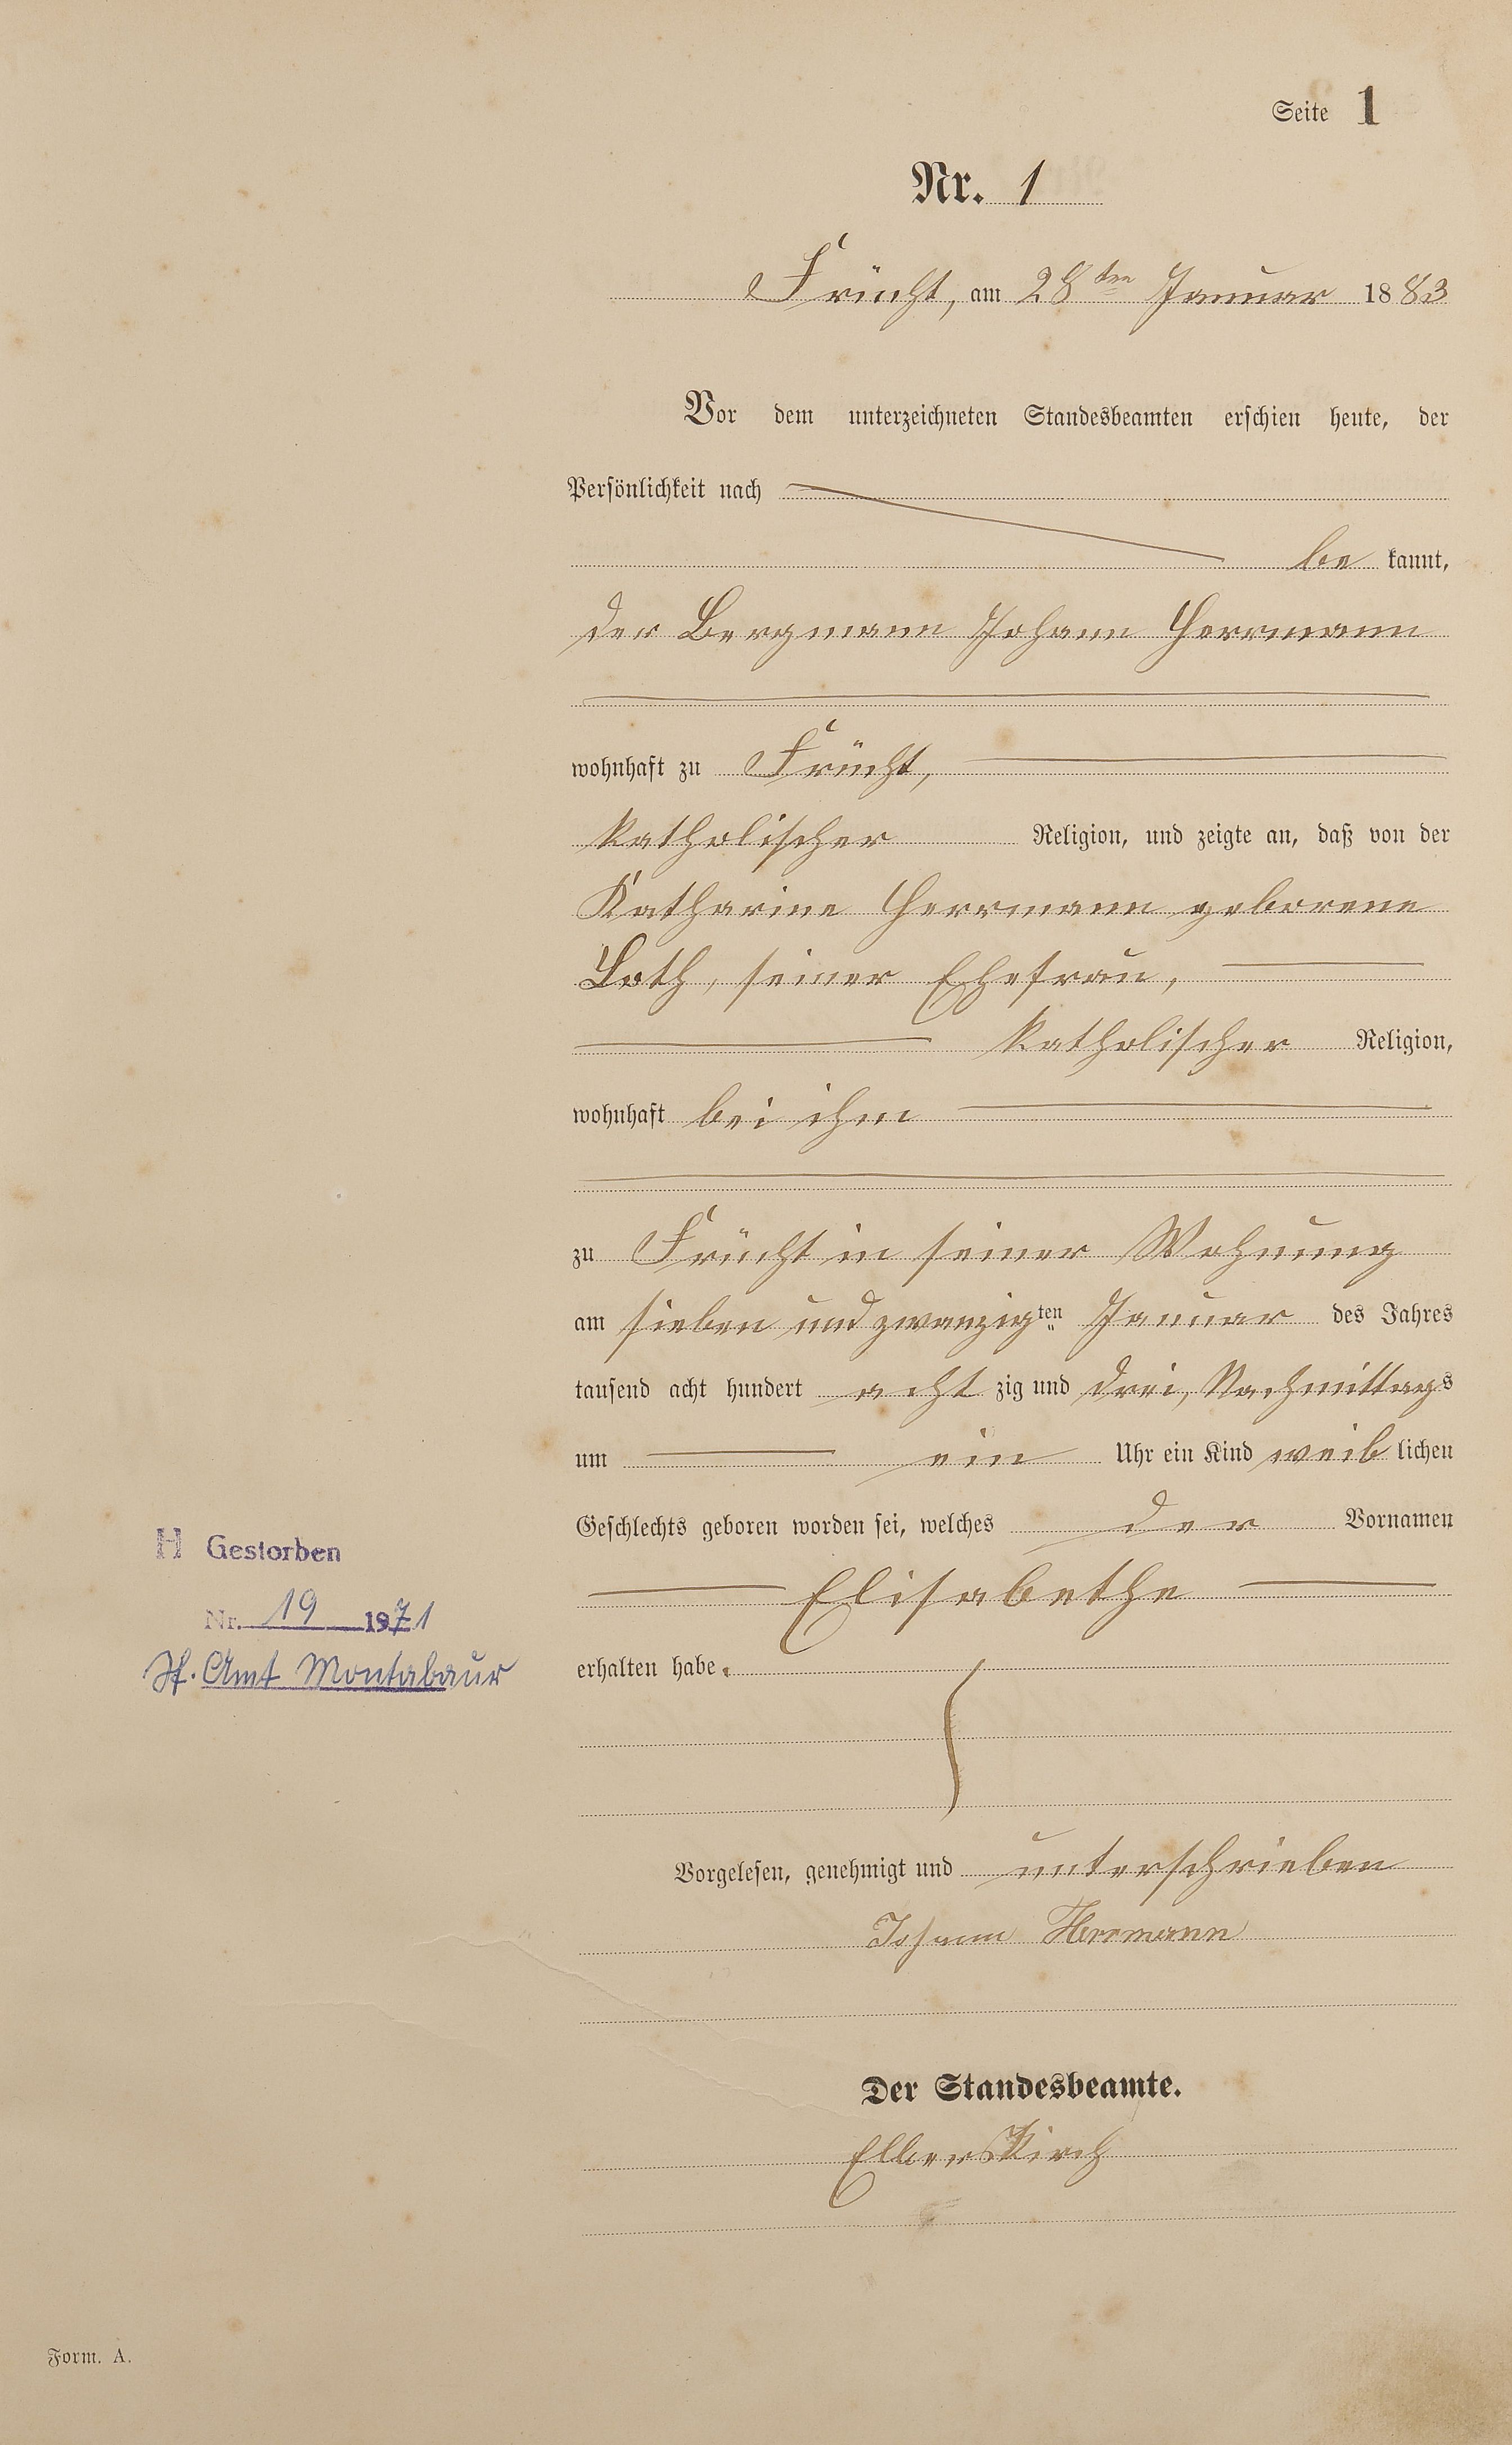 Seite 1
Nr. 1
Frücht, am 28ten Januar 1883
Vor dem unterzeichneten Standesbeamten erschien heute, der
Persönlichkeit nach
be kannt,
der Bergmann Johann Herrmann
wohnhaft zu Frücht,
katholischer Religion, und zeigte an, daß von der
Katharine Herrmann geborene
Loth, seiner Ehefrau,
katholischer Religion,
wohnhaft bei ihm
zu Frücht in seiner Wohnung
am sieben und zwanzigten Januar des Jahres
tausend acht hundert acht zig und drei, Nachmittags
um ein Uhr ein Kind weib lichen
Geschlechts geboren worden sei, welches der Vornamen
Elisabethe
erhalten habe.
H Gestorben
Nr. 19 1971
St. Amt Montabaur
Vorgelesen, genehmigt und unterschrieben
Johann Herrmann
Der Standesbeamte.
Elberskirch
Form. A.